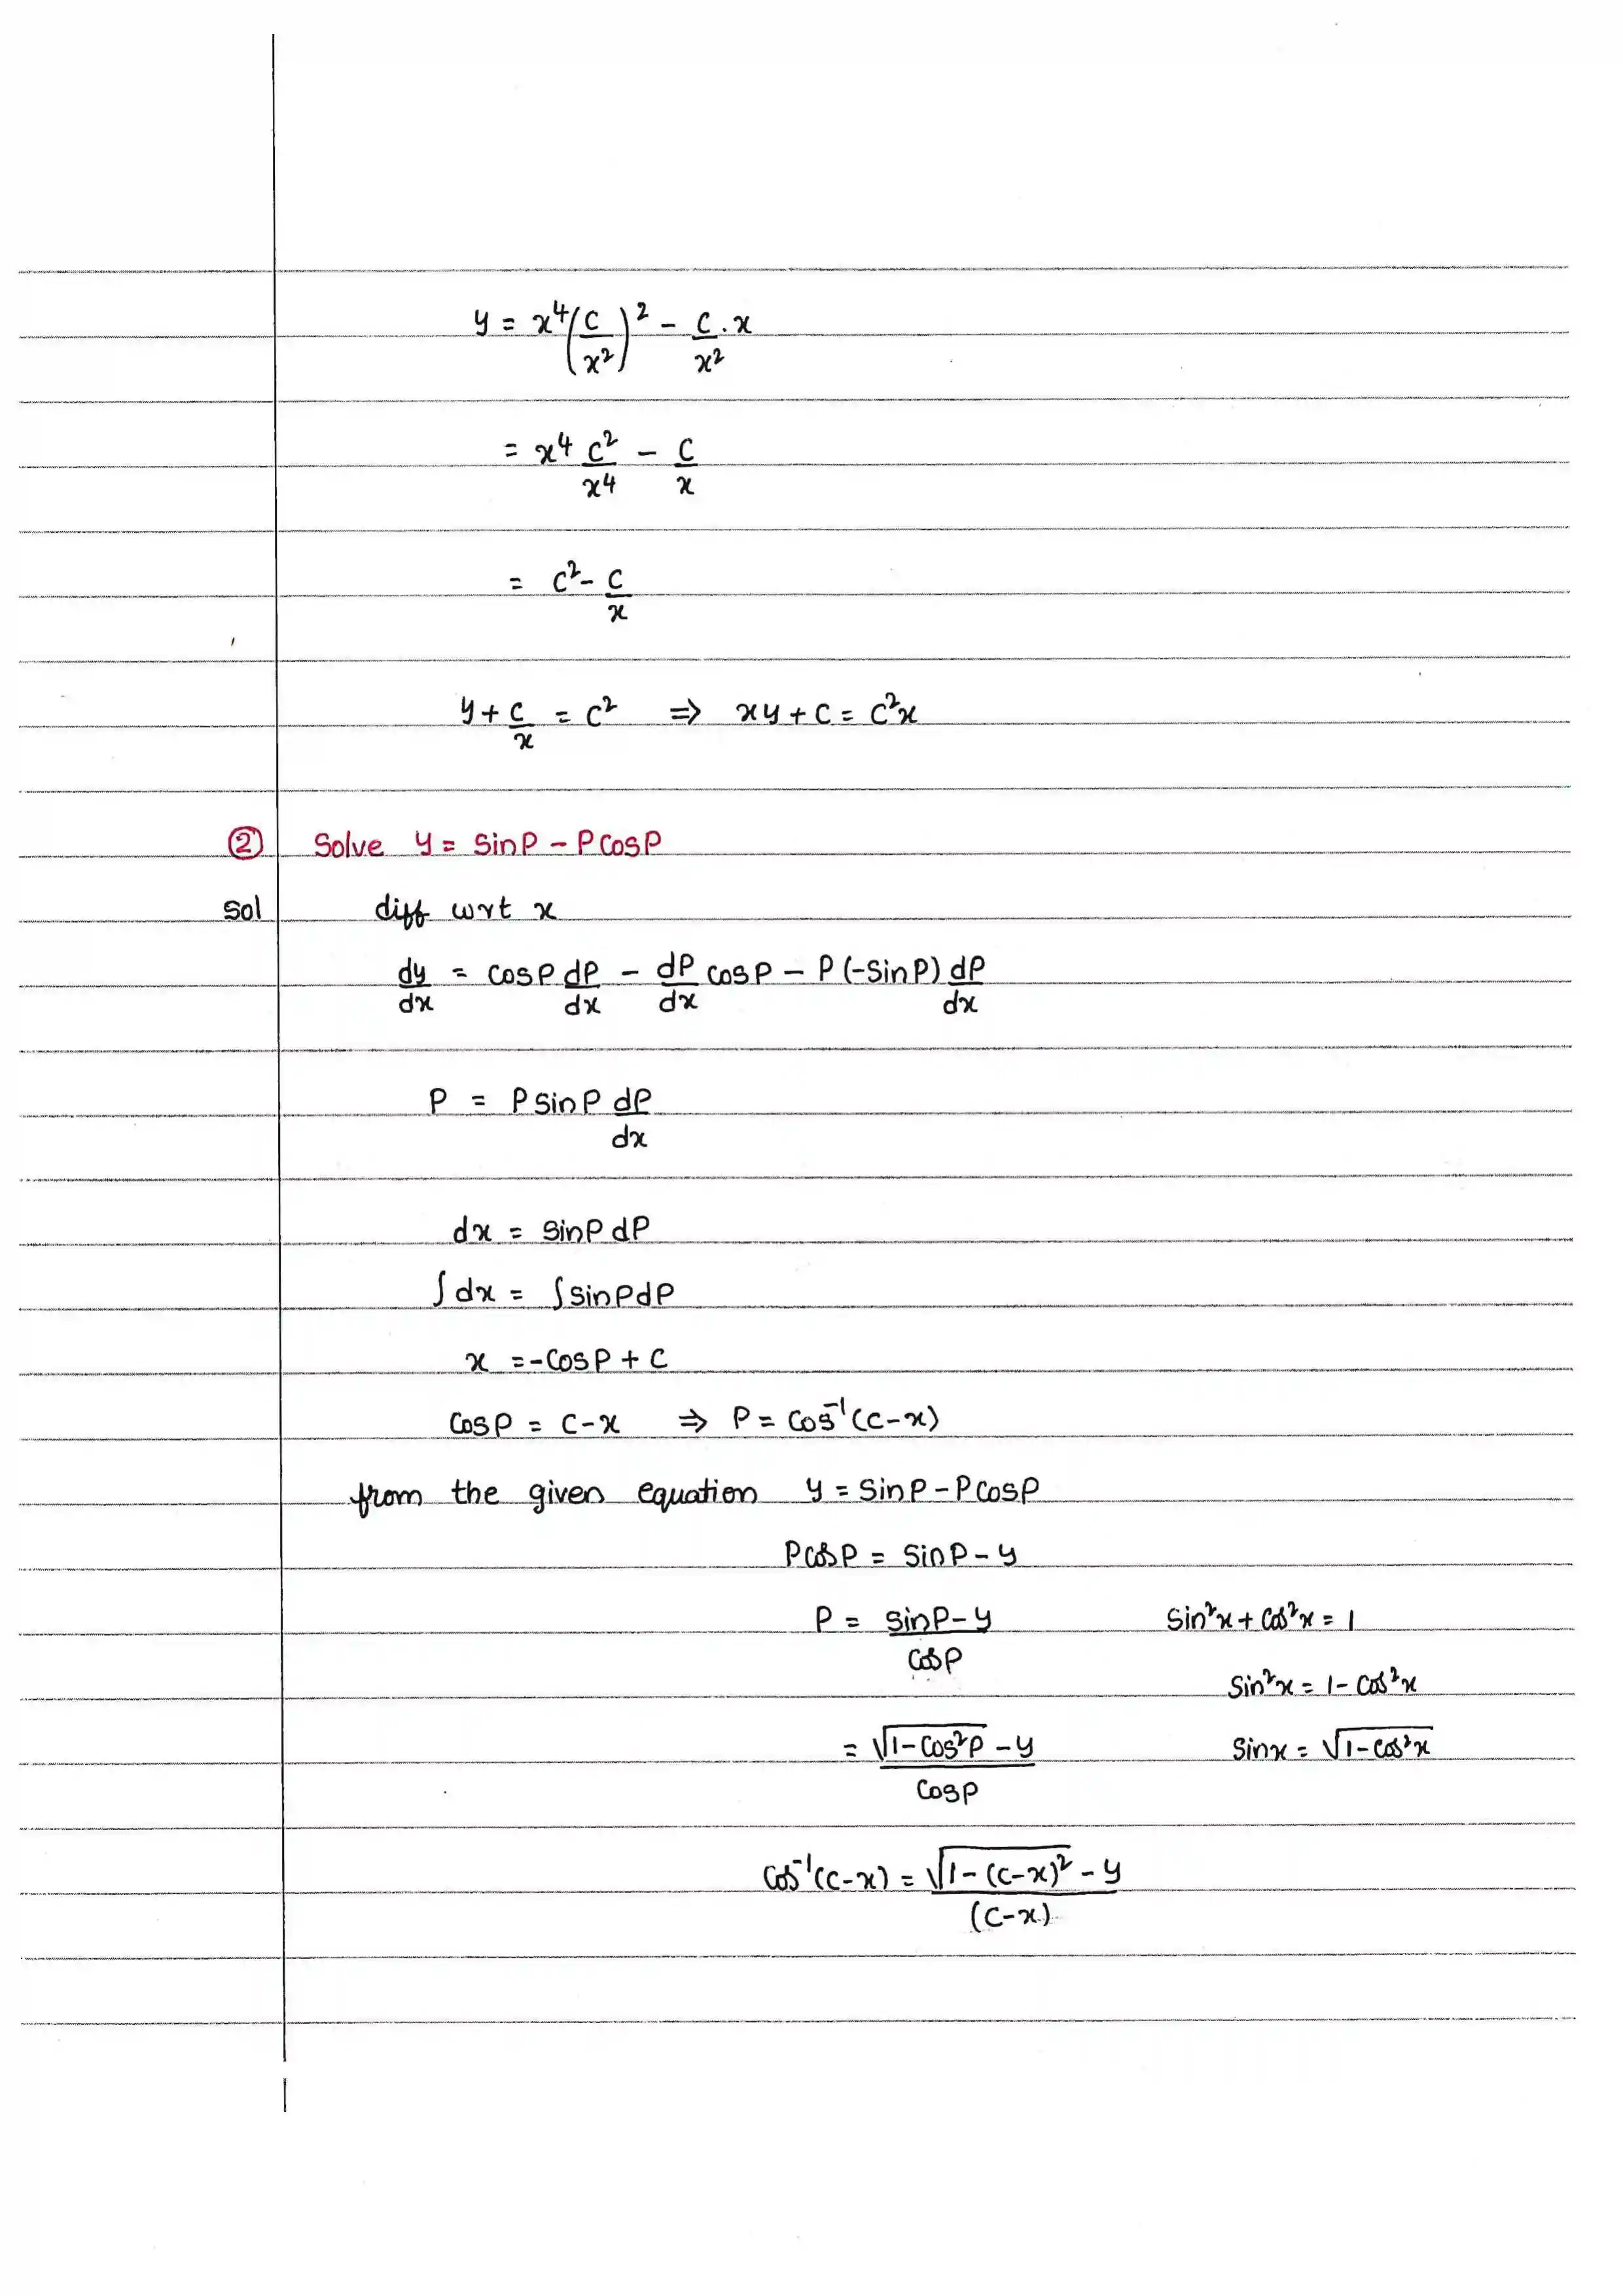 y = x⁴(c/x²)² - c/x² . x
= x⁴ c²/x⁴ - c/x
= c² - c/x
y + c/x = c² ⇒ xy + c = c²x
② Solve y = sinP - P cosP
Sol diff wrt x
dy/dx = cosP dP/dx - dP/dx cosP - P(-sinP) dP/dx
P = P sinP dP/dx
dx = sinP dP
∫dx = ∫sinP dP
x = -cosP + c
cosP = c - x ⇒ P = cos⁻¹(c-x)
from the given equation y = sinP - P cosP
P cosP = sinP - y
P = (sinP - y)/cosP sin²x + cos²x = 1
sin²x = 1 - cos²x
= (√(1-cos²P) - y)/cosP sinx = √(1-cos²x)
cos⁻¹(c-x) = (√(1-(c-x)²) - y)/(c-x)